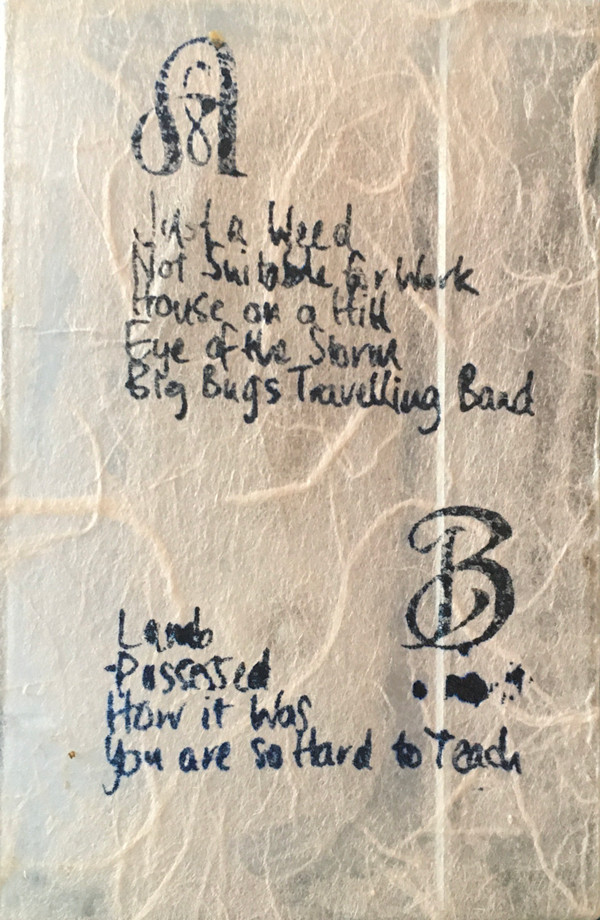 A
Just a Weed
Not Suitable for Work
House on a Hill
Eye of the Storm
Big Bugs Travelling Band
B
Lamb
Possessed
How it Was
You are so Hard to Teach